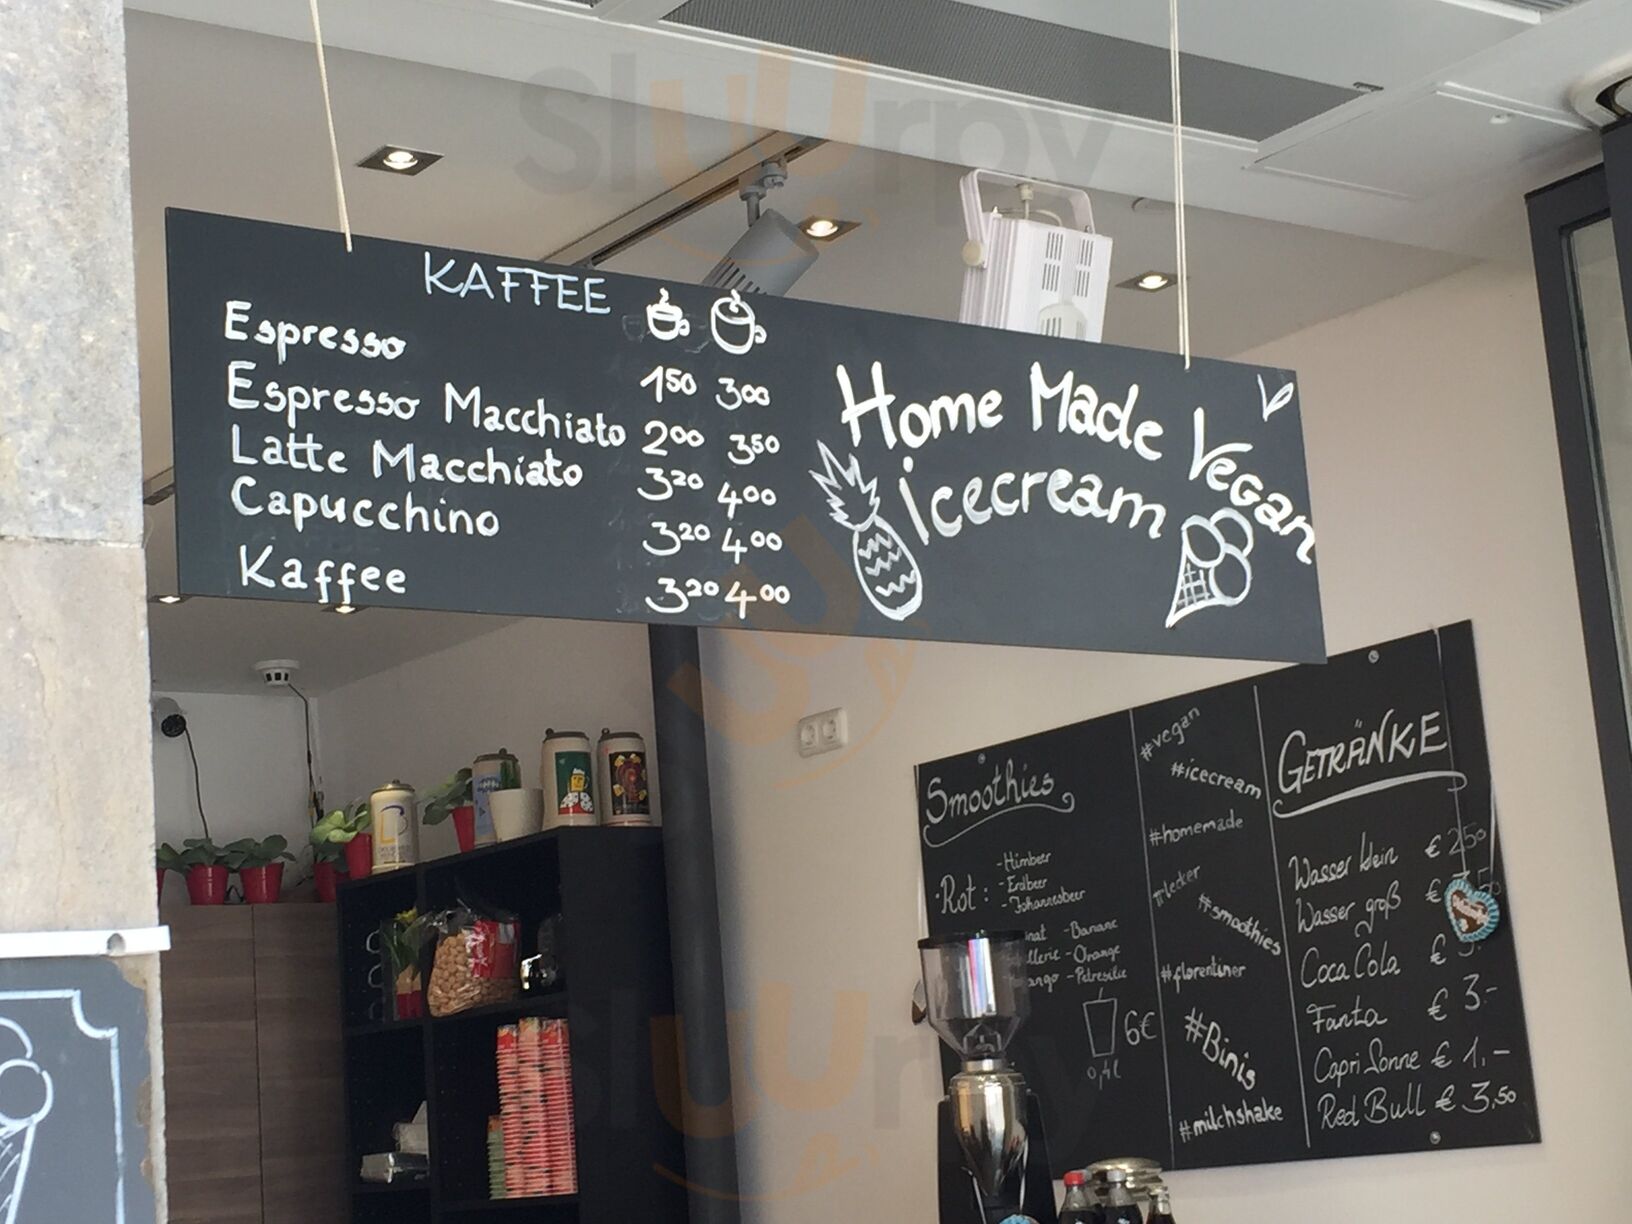 KAFFEE
Espresso 1 50 3 00
Espresso Macchiato 2 00 3 50
Latte Macchiato 3 20 4 00
Capucchino 3 20 4 00
Kaffee 3 20 4 00
Home Made Vegan
icecream
Smoothies
Rot: -Himbeer
-Erdbeer
-Johannesbeer
-Banane
-Orange
-Petresilie
6€
0,4l
#vegan
#icecream
#homemade
#lecker
#smoothies
#florentiner
#Binis
#milchshake
GETRÄNKE
Wasser klein € 2,50
Wasser groß €
Coca Cola € 3.-
Fanta € 3.-
Capri Sonne € 1,-
Red Bull € 3,50
Sluurpy
Sluurpy